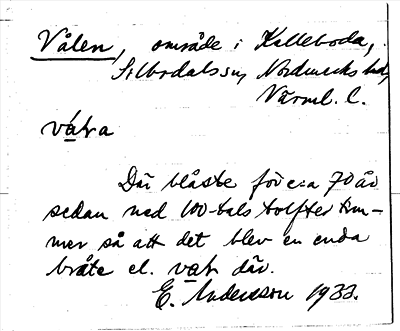 Vålen, område i Kalleboda,
Silbodals sn, Nordmarks hd,
Värml. l.
vå̱ta
Där blåste för c:a 70 år
sedan ned 100-tals tolfter tim-
mer så att det blev en enda
bråte el. våt där.
E. Andersson 1933.